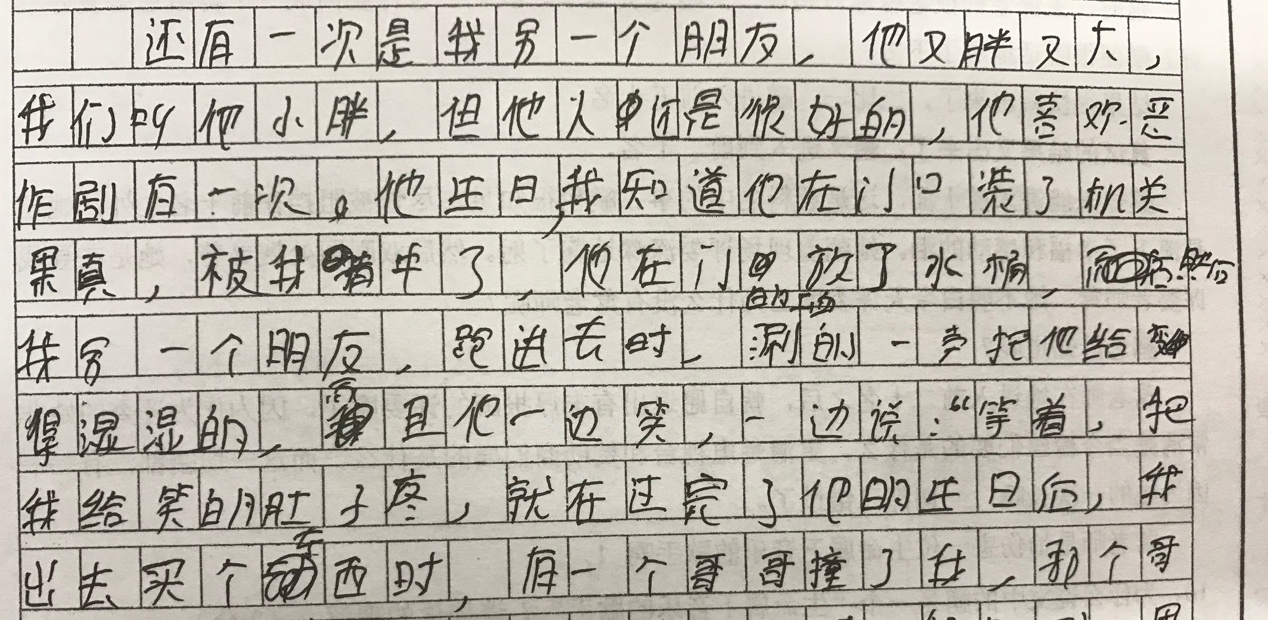 还有一次是我另一个朋友，他又胖又大，
我们叫他小胖，但他人还是很好的，他喜欢恶
作剧有一次。他生日，我知道他在门口装了机关
果真，被我猜中了，他在门口放了水桶，然后
的上面
我另一个朋友，跑进去时，涮的一声把他给
得湿湿的，而且他一边笑，一边说：“等着，把
我给笑的肚子疼，就在过完了他的生日后，我
出去买个东西时，有一个哥哥撞了我，那个哥